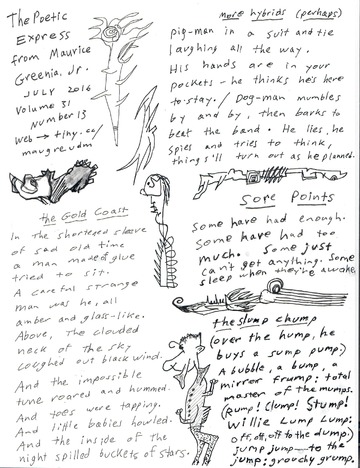 The Poetic
Express
from Maurice
Greenia, Jr.
JULY 2016
Volume 31
Number 13
web → tiny.cc/
maugreudm
More hybrids (perhaps)
pig-man in a suit and tie
laughing all the way.
His hands are in your
pockets - he thinks he's here
to stay. / Dog-man mumbles
by and by, then barks to
beat the band. He lies, he
spies and tries to think,
things'll turn out as he planned.
the Gold Coast
In the shortened sleeve
of sad old time
a man made of glue
tried to sit.
A careful strange
man was he, all
amber and glass-like.
Above, the clouded
neck of the sky
coughed out black wind.
And the impossible
tune roared and hummed.
And toes were tapping.
And little babies howled.
And the inside of the
night spilled buckets of stars.
Sore Points
Some have had enough.
Some have had too
much. Some just
can't get anything. Some
sleep when they're awake
the slump chump
(over the hump, he
buys a sump pump.)
A bubble, a bump, a
mirror frump: total
master of the mumps.
(Rump! Clump! Stump!
Willie Lump Lump:
off, off, off to the dump.)
jump jump — to the
jump: grouchy grump.